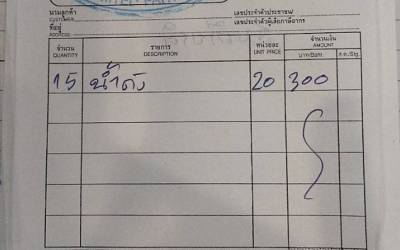 นามลูกค้า
CUSTOMER
เลขประจำตัวประชาชน/
เลขประจำตัวผู้เสียภาษีอากร
ที่อยู่
ADDRESS
จำนวน
QUANTITY
รายการ
DESCRIPTION
หน่วยละ
UNIT PRICE
จำนวนเงิน
AMOUNT
บาท/Baht
ส.ต./Stg.
15 น้ำถัง 20 300